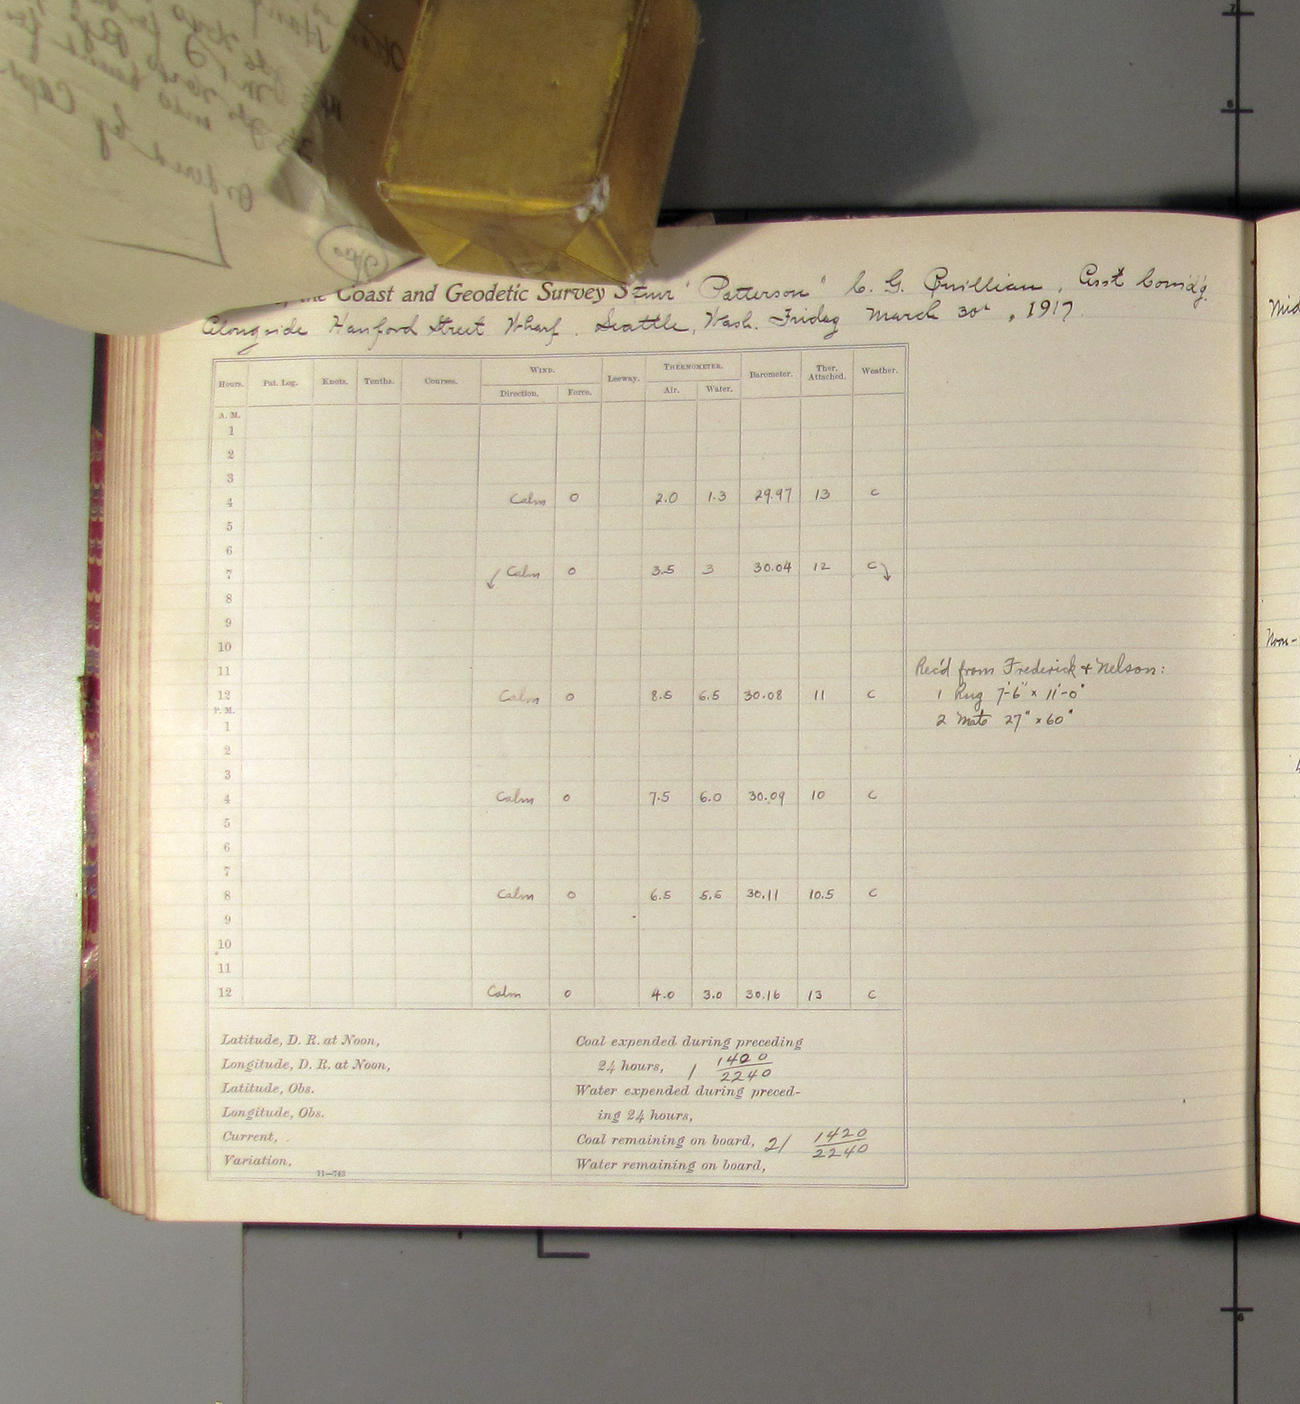 the Coast and Geodetic Survey Stmr "Patterson" C. G. Quillian, Asst Comd'g.
Alongside Hanford Street Wharf. Seattle, Wash. Friday March 30th, 1917.
Hours. Pat. Log. Knots. Tenths. Courses. WIND. Leeway. THERMOMETER. Barometer. Ther. Attached. Weather.
Direction. Force. Air. Water.
A. M.
1
2
3
4 Calm 0 2.0 1.3 29.97 13 c
5
6
7 Calm 0 3.5 3 30.04 12 c
8
9
10
11 Rec'd from Frederick & Nelson:
12 Calm 0 8.5 6.5 30.08 11 c 1 Rug 7'-6" x 11'-0"
P. M.
1 2 Mats 27" x 60"
2
3
4 Calm 0 7.5 6.0 30.09 10 c
5
6
7
8 Calm 0 6.5 5.5 30.11 10.5 c
9
10
11
12 Calm 0 4.0 3.0 30.16 13 c
Latitude, D. R. at Noon,
Longitude, D. R. at Noon,
Latitude, Obs.
Longitude, Obs.
Current,
Variation,
11—743
Coal expended during preceding
24 hours, 1 1420/2240
Water expended during preced-
ing 24 hours,
Coal remaining on board, 21 1420/2240
Water remaining on board,
Mid
Noon-